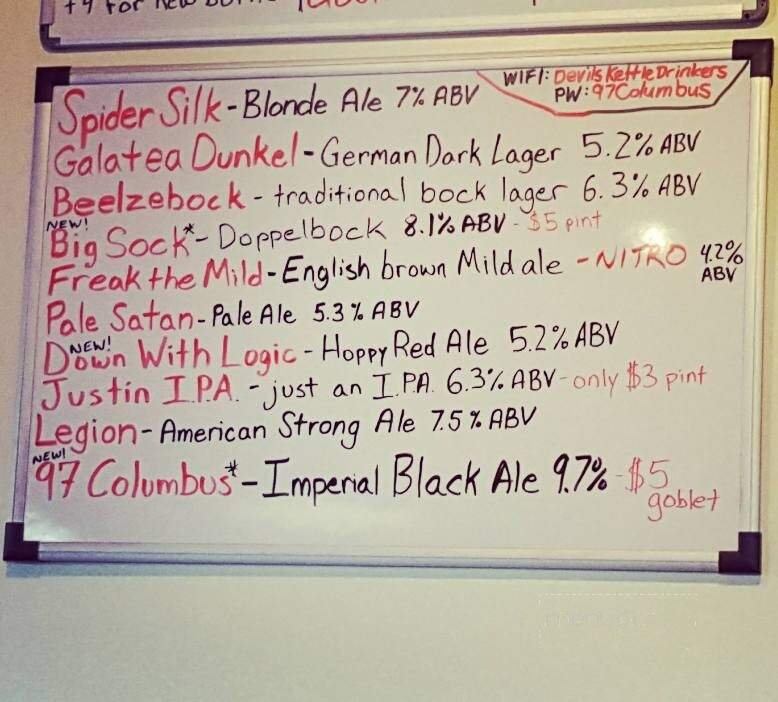 +4 for new
WIFI: Devils Kettle Drinkers
PW: 97Columbus
Spider Silk - Blonde Ale 7% ABV
Galatea Dunkel - German Dark Lager 5.2% ABV
Beelzebock - traditional bock lager 6.3% ABV
NEW!
Big Sock* - Doppelbock 8.1% ABV - $5 pint
Freak the Mild - English brown Mild ale - NITRO 4.2% ABV
Pale Satan - Pale Ale 5.3% ABV
NEW!
Down With Logic - Hoppy Red Ale 5.2% ABV
Justin I.P.A. - just an I.P.A. 6.3% ABV - only $3 pint
Legion - American Strong Ale 7.5% ABV
NEW!
97 Columbus* - Imperial Black Ale 9.7% - $5
goblet